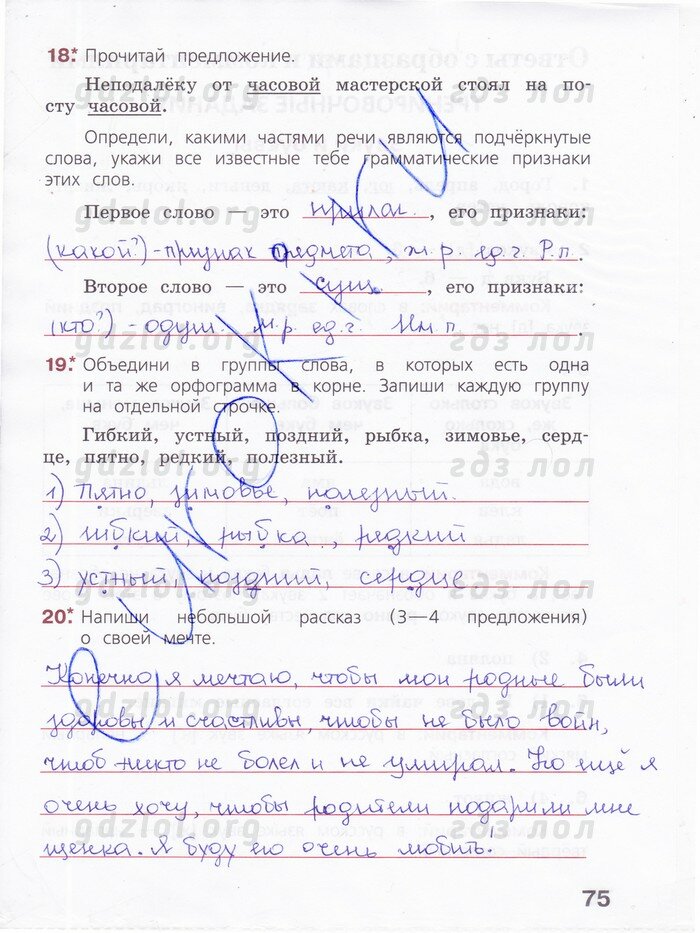 18.* Прочитай предложение.
Неподалёку от часовой мастерской стоял на по-
сту часовой.
Определи, какими частями речи являются подчёркнутые
слова, укажи все известные тебе грамматические признаки
этих слов.
Первое слово — это прилаг., его признаки:
(какой?) - признак предмета, ж.р. ед.ч. Р.п.
Второе слово — это сущ., его признаки:
(кто?) - одуш. м.р. ед.ч. Им.п.
19.* Объедини в группы слова, в которых есть одна
и та же орфограмма в корне. Запиши каждую группу
на отдельной строчке.
Гибкий, устный, поздний, рыбка, зимовье, серд-
це, пятно, редкий, полезный.
1) Пятно, зимовье, полезный.
2) гибкий, рыбка, редкий
3) устный, поздний, сердце
20.* Напиши небольшой рассказ (3—4 предложения)
о своей мечте.
Конечно я мечтаю, чтобы мои родные были
здоровы и счастливы, чтобы не было войн,
чтоб никто не болел и не умирал. Но ещё я
очень хочу, чтобы родители подарили мне
щенка. Я буду его очень любить.
75
gdzlol.org гдз лол
gdzlol.org гдз лол
gdzlol.org гдз лол
gdzlol.org гдз лол
gdzlol.org гдз лол
gdzlol.org гдз лол
gdzlol.org гдз лол
gdzlol.org гдз лол